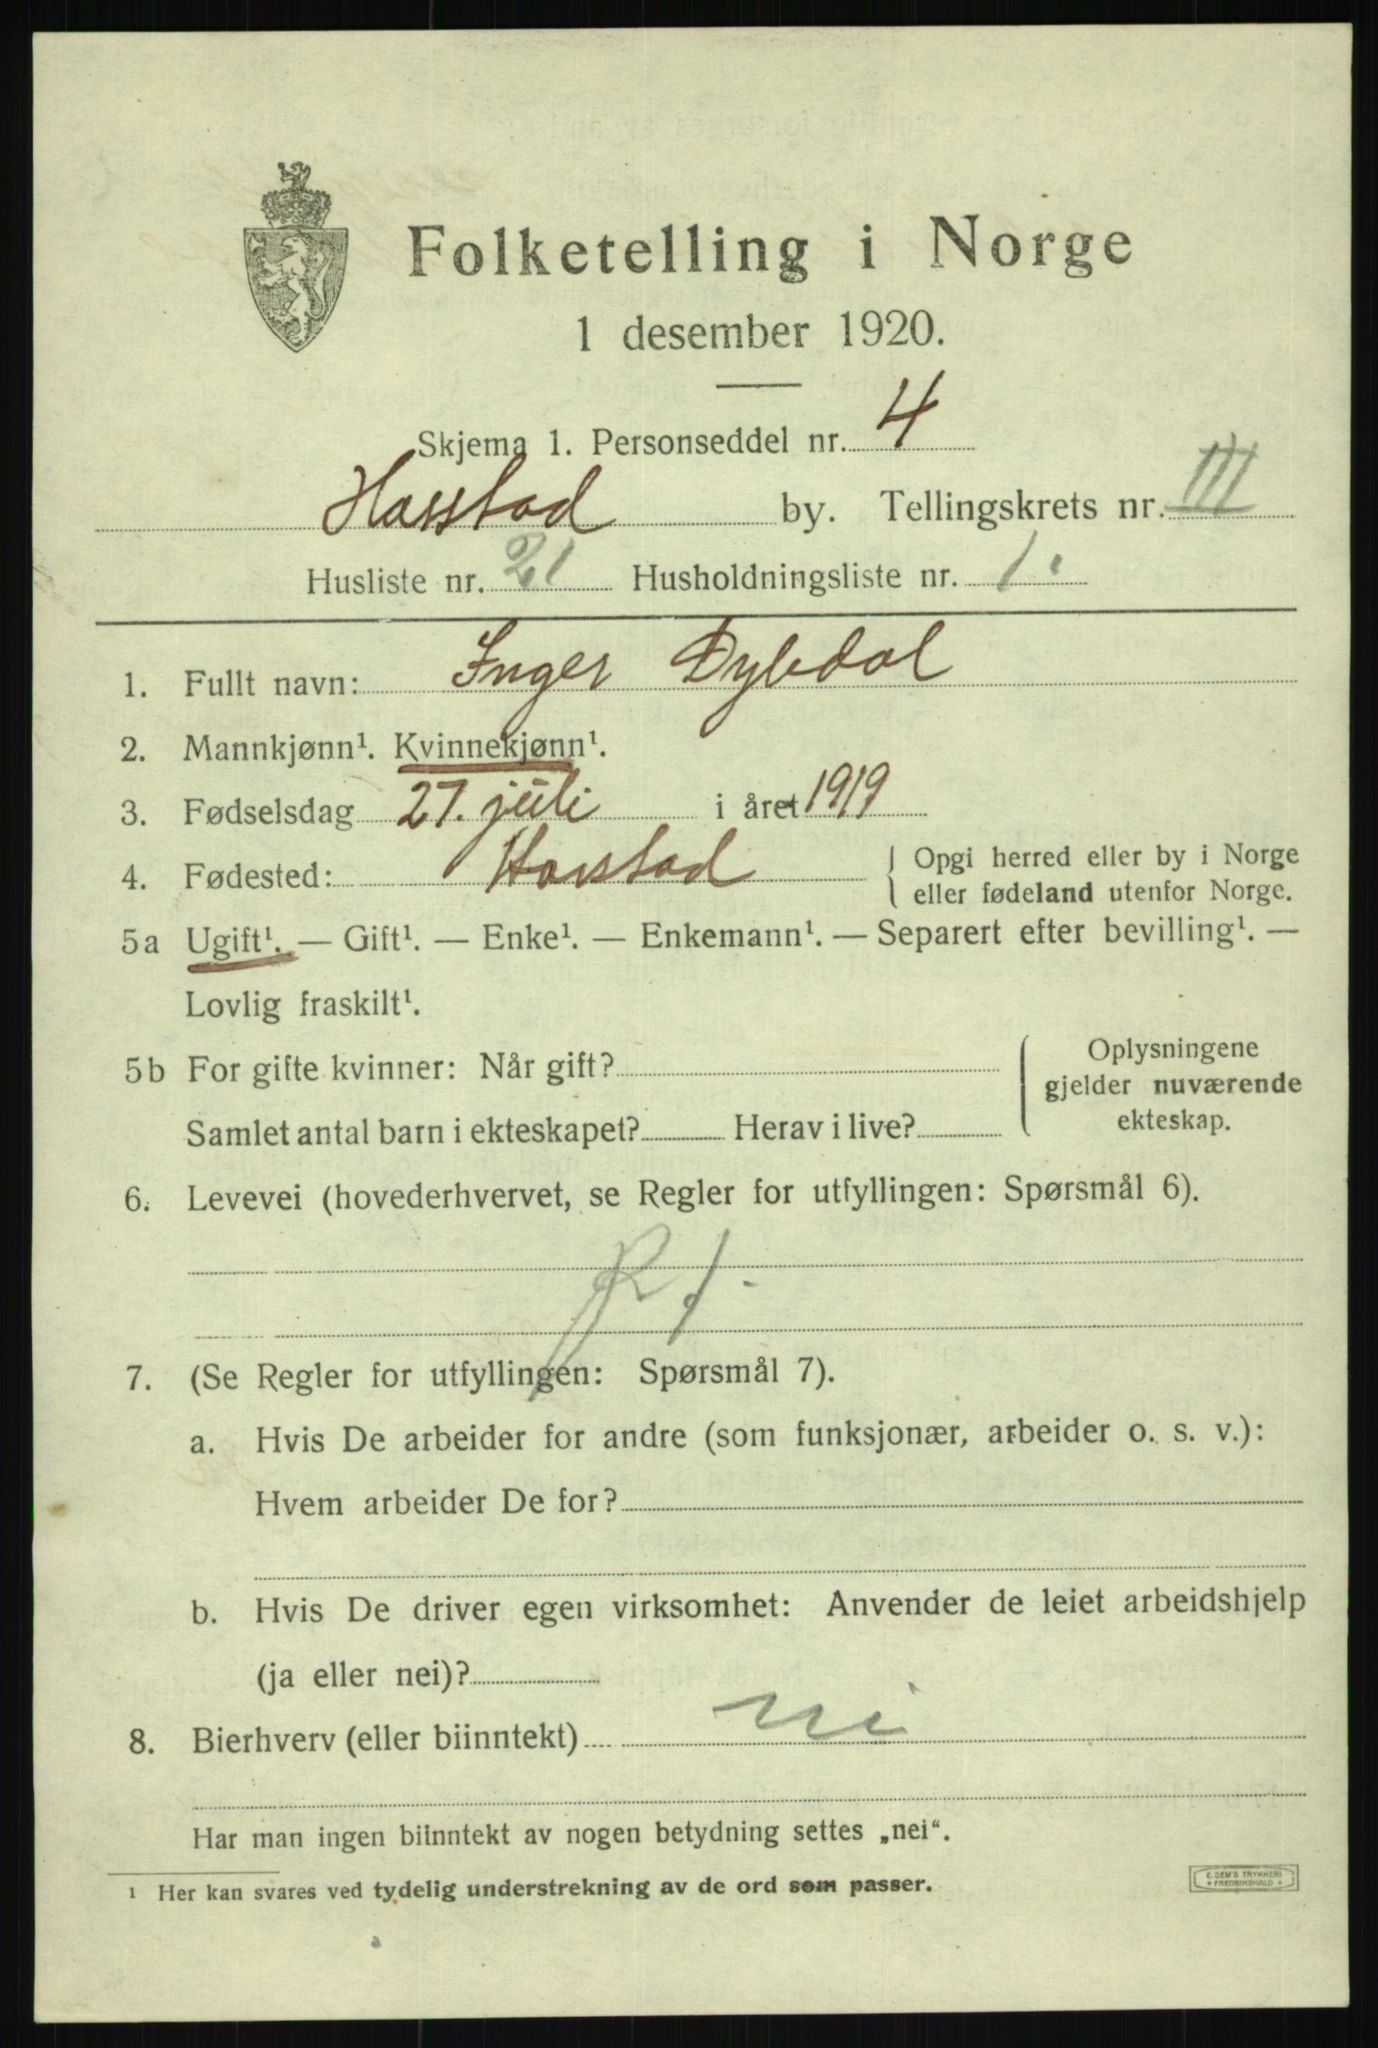 Folketelling i Norge
1 desember 1920.
Skjema 1. Personseddel nr. 4
Harstad by. Tellingskrets nr. III
Husliste nr. 21 Husholdningsliste nr. 1.
1. Fullt navn: Inger Dybdal
2. Mannkjønn¹. Kvinnekjønn¹.
3. Fødselsdag 27. juli i året 1919
4. Fødested: Harstad { Opgi herred eller by i Norge
eller fødeland utenfor Norge.
5a Ugift¹. — Gift¹. — Enke¹. — Enkemann¹. — Separert efter bevilling¹. —
Lovlig fraskilt¹.
5b For gifte kvinner: Når gift?
Samlet antal barn i ekteskapet? Herav i live?
{ Oplysningene
gjelder nuværende
ekteskap.
6. Levevei (hovederhvervet, se Regler for utfyllingen: Spørsmål 6).
7. (Se Regler for utfyllingen: Spørsmål 7).
a. Hvis De arbeider for andre (som funksjonær, arbeider o. s. v.):
Hvem arbeider De for?
b. Hvis De driver egen virksomhet: Anvender de leiet arbeidshjelp
(ja eller nei)?
8. Bierhverv (eller biinntekt)
Har man ingen biinntekt av nogen betydning settes „nei“.
1 Her kan svares ved tydelig understrekning av de ord som passer.
E. SEM'S TRYKKERI
* FREDRIKSHALD *